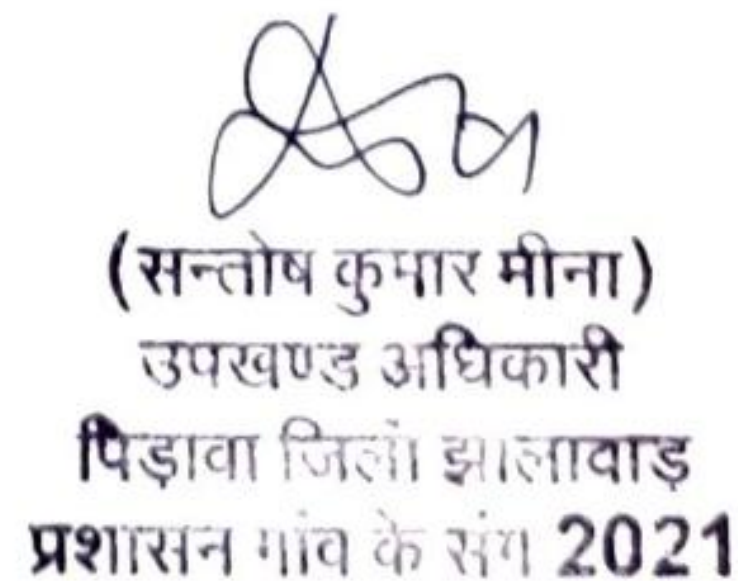 (सन्तोष कुमार मीना)
उपखण्ड अधिकारी
पिड़ावा जिला झालावाड़
प्रशासन गांव के संग 2021